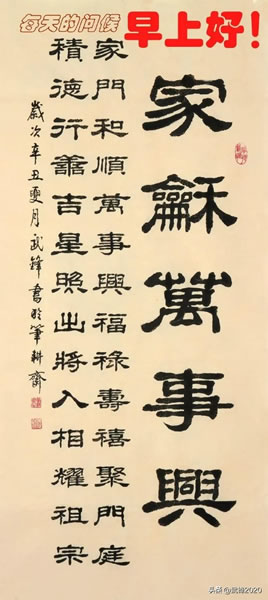 每天的问候
早上好!
家龢萬事興
家門和順萬事興福祿壽禧聚門庭
積德行善吉星照出將入相耀祖宗
歲次辛丑夏月武鋒書於筆耕齋
头条@武锋2020